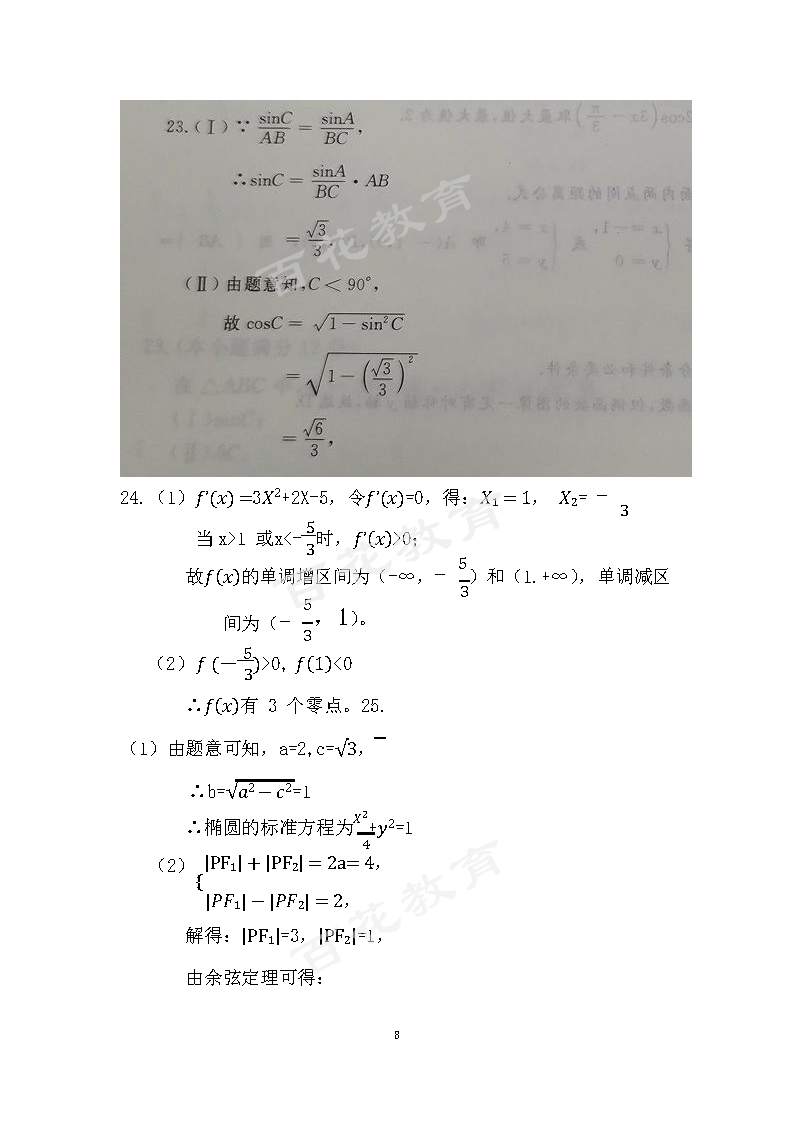 23.(Ⅰ)∵ sinC/AB = sinA/BC,
∴sinC = sinA/BC · AB
= √3/3.
(Ⅱ)由题意知,C < 90°,
故 cosC = √(1 − sin²C)
= √(1 − (√3/3)²)
= √6/3,
24.(1)f'(x) =3X²+2X-5, 令f'(x)=0, 得: X₁ = 1, X₂= − 3
当x>1 或x<-5/3时, f'(x)>0;
故f(x)的单调增区间为(-∞, - 5/3) 和(1.+∞), 单调减区
间为(- 5/3, 1)。
(2) f (—5/3)>0, f(1)<0
∴f(x)有 3 个零点。25.
(1)由题意可知, a=2,c=√3,
∴b=√(a² − c²)=1
∴椭圆的标准方程为X²/4+y²=1
(2) { |PF₁| + |PF₂| = 2a= 4,
|PF₁| − |PF₂| = 2,
解得: |PF₁|=3, |PF₂|=1,
由余弦定理可得:
8
百花教育
百花教育
百花教育